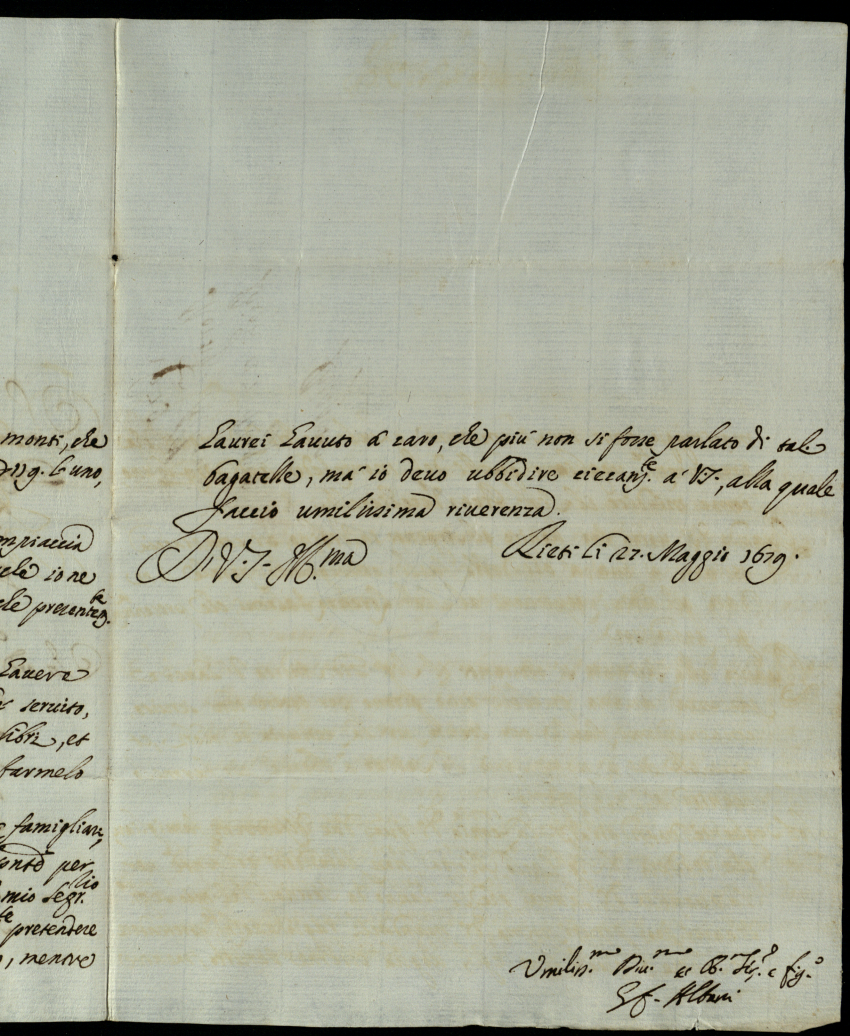 monti, che
uno,
mpiaccia
ele io ne
ele presente
havere
servito,
libri, et
farmelo
famigliare,
onte per
mio Segr.rio
pretendere
, mentre
haurei hauuto à caro, che più non si fosse parlato di tali
bagatelle, mà io deuo ubbidire ciecam.te à VS., alla quale
faccio umilissima riuerenza.
Di V.S. Ill.ma Rieti li 27. Maggio 1679.
Umiliss.mo Diu.mo et Ob.
Albani